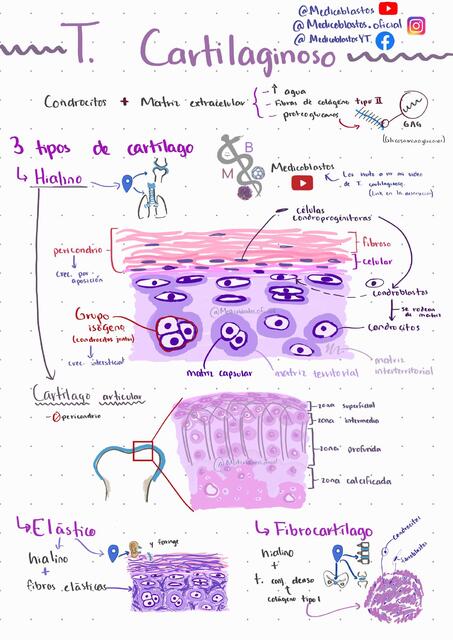 @Medicoblastos
@Medicoblastos.oficial
@MedicoblastosYT
T. Cartilaginoso
Condrocitos + Matriz extracelular
- ↑ agua
- Fibras de colágeno tipo II
- proteoglucanos
GAG
(Glicosaminoglicano)
3 tipos de cartílago
↳ Hialino
B
M
Medicoblastos
(Link en la descripción)
células
condroprogenitoras
pericondrio
crec. por
aposición
fibroso
celular
condroblastos
→ se rodean
de matriz
condrocitos
@Medicoblastos.oficial
Grupo
isógeno
(condrocitos juntos)
crec. intersticial
matriz capsular
matriz territorial
matriz
interterritorial
Cartílago articular
- Ø pericondrio
zona superficial
zona intermedia
zona profunda
zona calcificada
↳ Elástico
hialino
+
fibras elásticas
y faringe
↳ Fibrocartílago
hialino
+
t. conj. denso
colágeno tipo I
condrocitos
fibroblastos